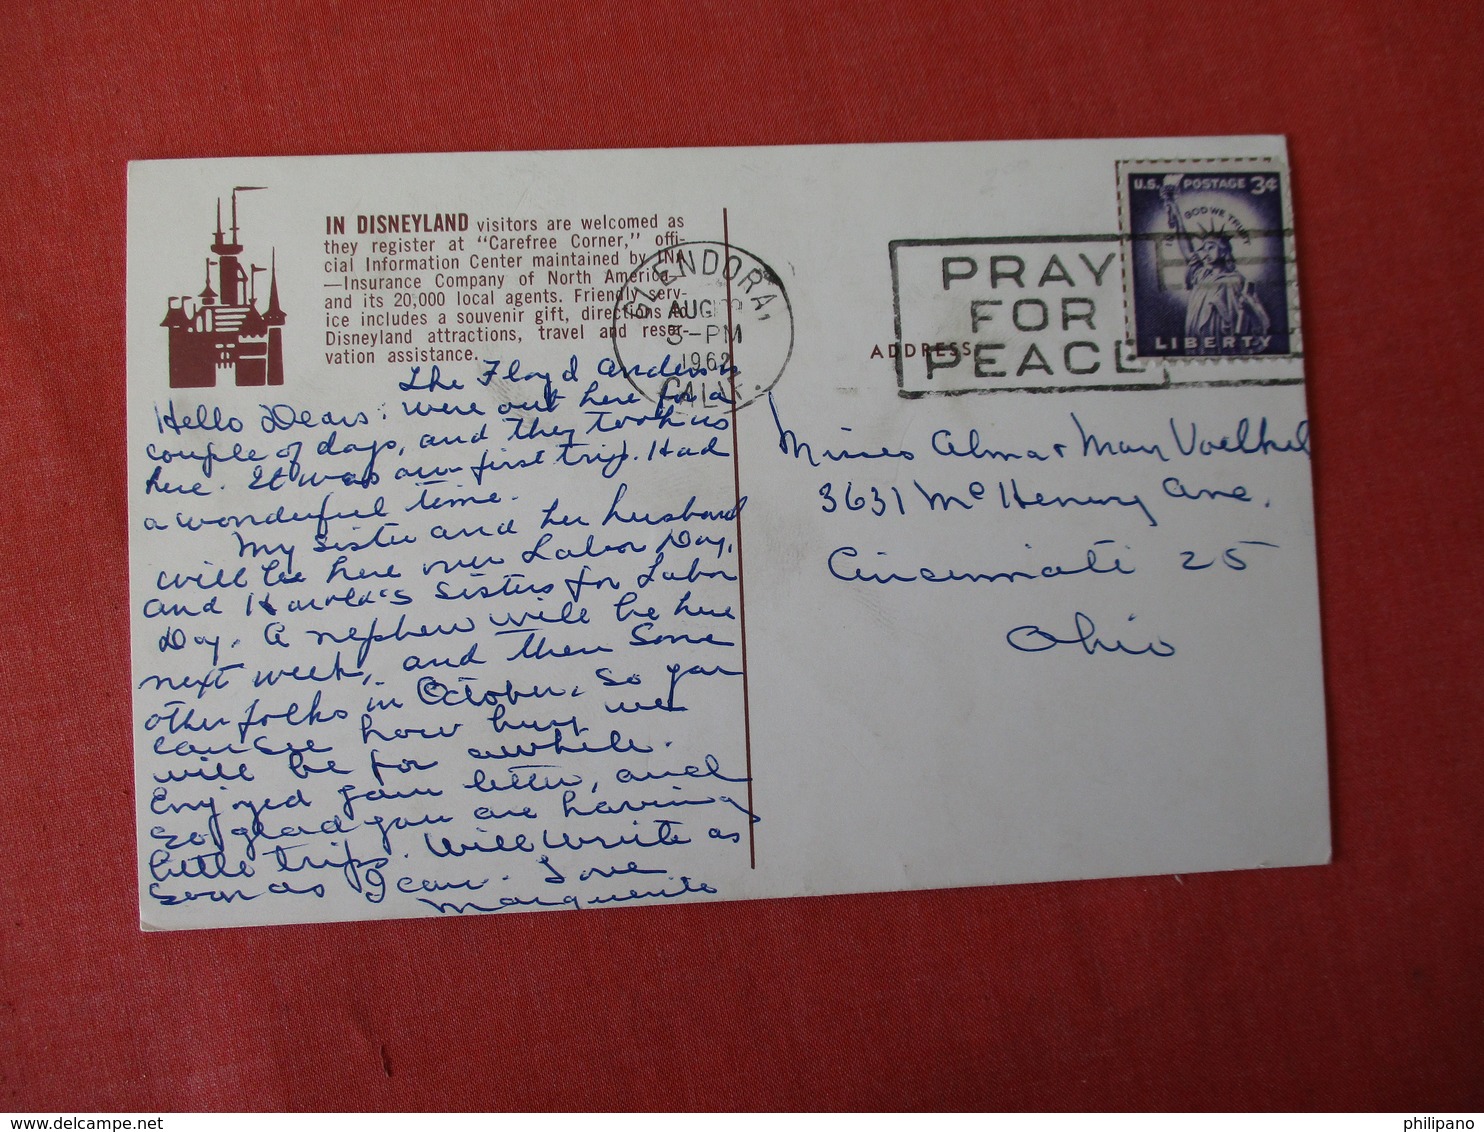 IN DISNEYLAND visitors are welcomed as
they register at "Carefree Corner," offi-
cial Information Center maintained by INA
—Insurance Company of North America—
and its 20,000 local agents. Friendly serv-
ice includes a souvenir gift, directions to
Disneyland attractions, travel and reser-
vation assistance.
The Floyd
Hello Dears: were out here for a
couple of days, and they took us
here. It was our first trip. Had
a wonderful time.
My sister and her husband
will be here over Labor Day,
and Harold's sisters for Labor
Day. A nephew will be here
next week, and then some
other folks in October. So you
can see how busy we
will be for awhile.
Enjoyed your letter, and
so glad you are having
little trips. Will write as
soon as I can. Love
Marguerite
GLENDORA,
AUG
3-PM
1962
CALIF.
PRAY
FOR
PEACE
U.S. POSTAGE 3¢
IN GOD WE TRUST
LIBERTY
ADDRESS
Misses Alma + May Voelkel
3631 McHenry Ave.
Cincinnati 25
Ohio
philipano